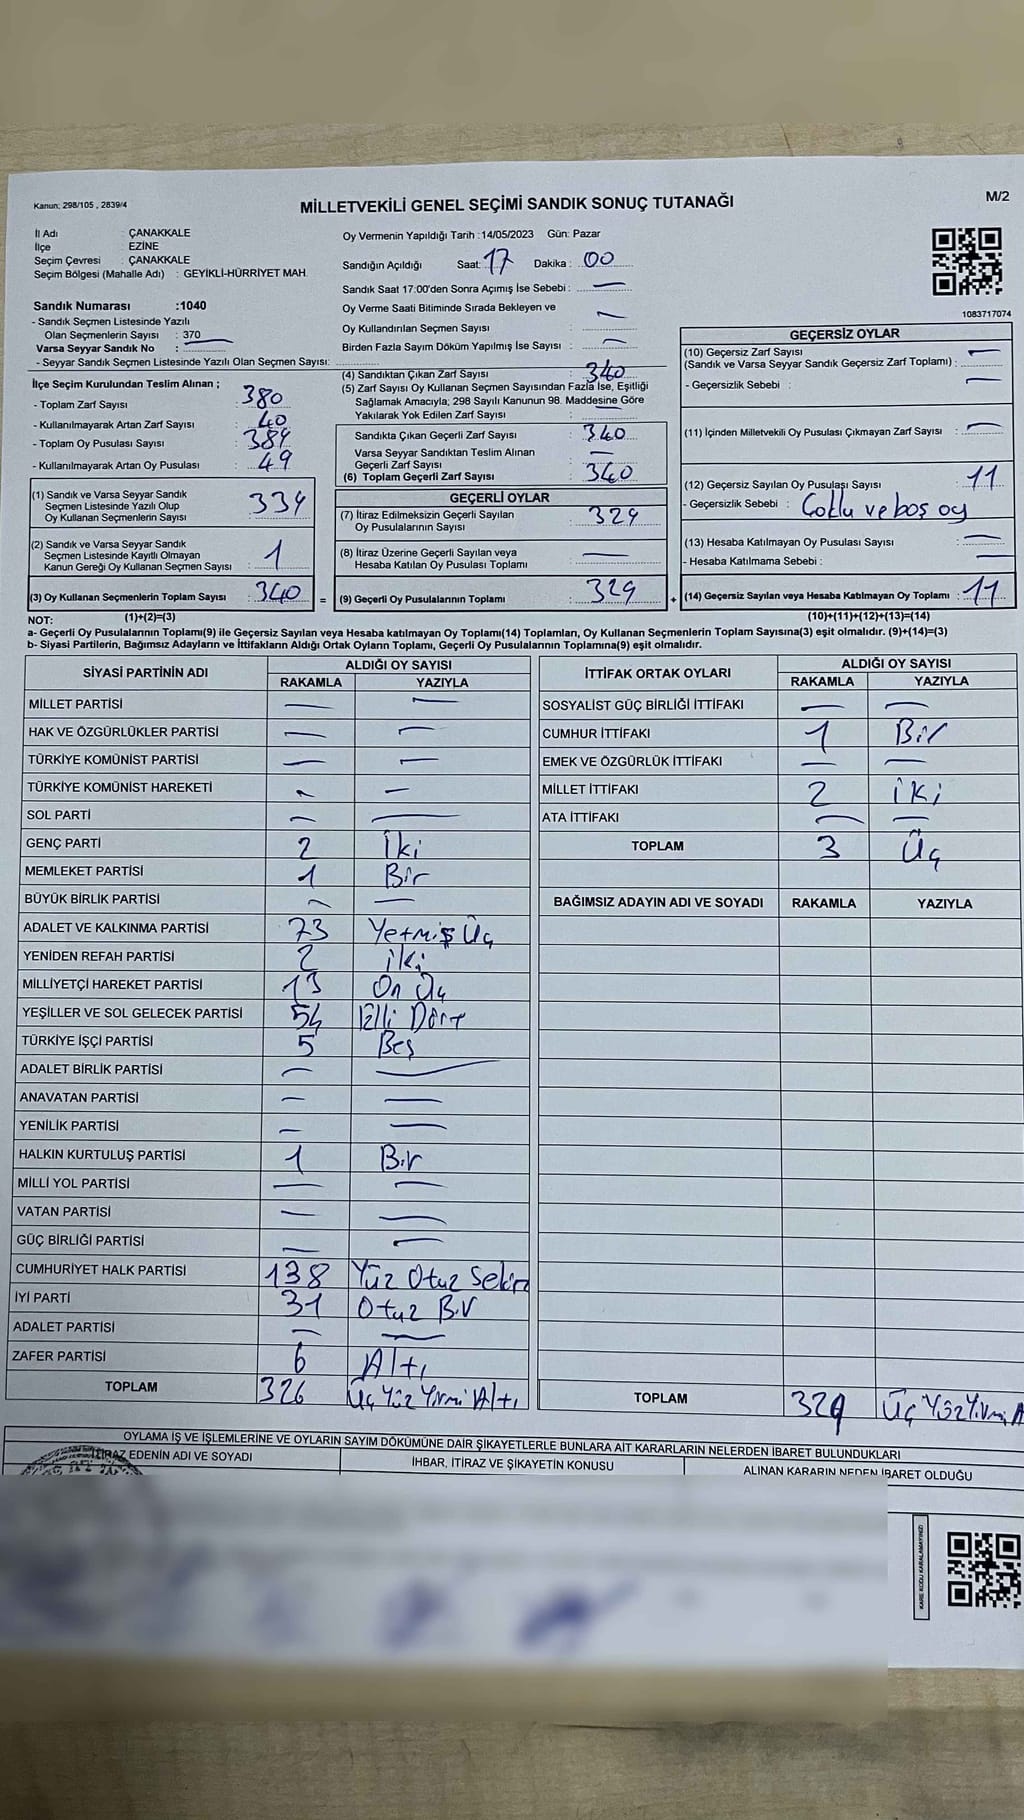 Kanun; 298/105 , 2839/4
MİLLETVEKİLİ GENEL SEÇİMİ SANDIK SONUÇ TUTANAĞI
M/2
İl Adı : ÇANAKKALE
İlçe : EZİNE
Seçim Çevresi : ÇANAKKALE
Seçim Bölgesi (Mahalle Adı) : GEYİKLİ-HÜRRİYET MAH.
Oy Vermenin Yapıldığı Tarih :14/05/2023 Gün: Pazar
Sandığın Açıldığı Saat: 17 Dakika : 00
Sandık Saat 17:00'den Sonra Açımış İse Sebebi : —
Oy Verme Saati Bitiminde Sırada Bekleyen ve
Oy Kullandırılan Seçmen Sayısı : —
Birden Fazla Sayım Döküm Yapılmış İse Sayısı : —
1083717074
Sandık Numarası :1040
- Sandık Seçmen Listesinde Yazılı
Olan Seçmenlerin Sayısı : 370
Varsa Seyyar Sandık No : —
- Seyyar Sandık Seçmen Listesinde Yazılı Olan Seçmen Sayısı:
İlçe Seçim Kurulundan Teslim Alınan ;
- Toplam Zarf Sayısı : 380
- Kullanılmayarak Artan Zarf Sayısı : 40
- Toplam Oy Pusulası Sayısı : 389
- Kullanılmayarak Artan Oy Pusulası : 49
(1) Sandık ve Varsa Seyyar Sandık
Seçmen Listesinde Yazılı Olup
Oy Kullanan Seçmenlerin Sayısı : 339
(2) Sandık ve Varsa Seyyar Sandık
Seçmen Listesinde Kayıtlı Olmayan
Kanun Gereği Oy Kullanan Seçmen Sayısı : 1
(3) Oy Kullanan Seçmenlerin Toplam Sayısı : 340 =
(1)+(2)=(3)
(4) Sandıktan Çıkan Zarf Sayısı : 340
(5) Zarf Sayısı Oy Kullanan Seçmen Sayısından Fazla İse, Eşitliği
Sağlamak Amacıyla; 298 Sayılı Kanunun 98. Maddesine Göre
Yakılarak Yok Edilen Zarf Sayısı : —
Sandıkta Çıkan Geçerli Zarf Sayısı : 340
Varsa Seyyar Sandıktan Teslim Alınan
Geçerli Zarf Sayısı : —
(6) Toplam Geçerli Zarf Sayısı : 340
GEÇERLİ OYLAR
(7) İtiraz Edilmeksizin Geçerli Sayılan
Oy Pusulalarının Sayısı : 329
(8) İtiraz Üzerine Geçerli Sayılan veya
Hesaba Katılan Oy Pusulası Toplamı : —
(9) Geçerli Oy Pusulalarının Toplamı : 329 +
GEÇERSİZ OYLAR
(10) Geçersiz Zarf Sayısı : —
(Sandık ve Varsa Seyyar Sandık Geçersiz Zarf Toplamı) :
- Geçersizlik Sebebi : —
(11) İçinden Milletvekili Oy Pusulası Çıkmayan Zarf Sayısı : —
(12) Geçersiz Sayılan Oy Pusulası Sayısı : 11
- Geçersizlik Sebebi : Çoklu ve boş oy
(13) Hesaba Katılmayan Oy Pusulası Sayısı : —
- Hesaba Katılmama Sebebi : —
(14) Geçersiz Sayılan veya Hesaba Katılmayan Oy Toplamı : 11
(10)+(11)+(12)+(13)=(14)
NOT:
a- Geçerli Oy Pusulalarının Toplamı(9) ile Geçersiz Sayılan veya Hesaba katılmayan Oy Toplamı(14) Toplamları, Oy Kullanan Seçmenlerin Toplam Sayısına(3) eşit olmalıdır. (9)+(14)=(3)
b- Siyasi Partilerin, Bağımsız Adayların ve İttifakların Aldığı Ortak Oyların Toplamı, Geçerli Oy Pusulalarının Toplamına(9) eşit olmalıdır.
SİYASİ PARTİNİN ADI ALDIĞI OY SAYISI
RAKAMLA YAZIYLA
MİLLET PARTİSİ — —
HAK VE ÖZGÜRLÜKLER PARTİSİ — —
TÜRKİYE KOMÜNİST PARTİSİ — —
TÜRKİYE KOMÜNİST HAREKETİ — —
SOL PARTİ — —
GENÇ PARTİ 2 İki
MEMLEKET PARTİSİ 1 Bir
BÜYÜK BİRLİK PARTİSİ — —
ADALET VE KALKINMA PARTİSİ 73 Yetmiş Üç
YENİDEN REFAH PARTİSİ 2 iki
MİLLİYETÇİ HAREKET PARTİSİ 13 On Üç
YEŞİLLER VE SOL GELECEK PARTİSİ 54 Elli Dört
TÜRKİYE İŞÇİ PARTİSİ 5 Beş
ADALET BİRLİK PARTİSİ — —
ANAVATAN PARTİSİ — —
YENİLİK PARTİSİ — —
HALKIN KURTULUŞ PARTİSİ 1 Bir
MİLLİ YOL PARTİSİ — —
VATAN PARTİSİ — —
GÜÇ BİRLİĞİ PARTİSİ — —
CUMHURİYET HALK PARTİSİ 138 Yüz Otuz Sekiz
İYİ PARTİ 31 Otuz Bir
ADALET PARTİSİ — —
ZAFER PARTİSİ 6 Altı
TOPLAM 326 Üç Yüz Yirmi Altı
İTTİFAK ORTAK OYLARI ALDIĞI OY SAYISI
RAKAMLA YAZIYLA
SOSYALİST GÜÇ BİRLİĞİ İTTİFAKI — —
CUMHUR İTTİFAKI 1 Bir
EMEK VE ÖZGÜRLÜK İTTİFAKI — —
MİLLET İTTİFAKI 2 iki
ATA İTTİFAKI — —
TOPLAM 3 Üç
BAĞIMSIZ ADAYIN ADI VE SOYADI RAKAMLA YAZIYLA
TOPLAM 329 Üç Yüz Yirmi
OYLAMA İŞ VE İŞLEMLERİNE VE OYLARIN SAYIM DÖKÜMÜNE DAİR ŞİKAYETLERLE BUNLARA AİT KARARLARIN NELERDEN İBARET BULUNDUKLARI
İTİRAZ EDENİN ADI VE SOYADI İHBAR, İTİRAZ VE ŞİKAYETİN KONUSU ALINAN KARARIN NEDEN İBARET OLDUĞU
KARE KODU KARALAMAYINIZ!